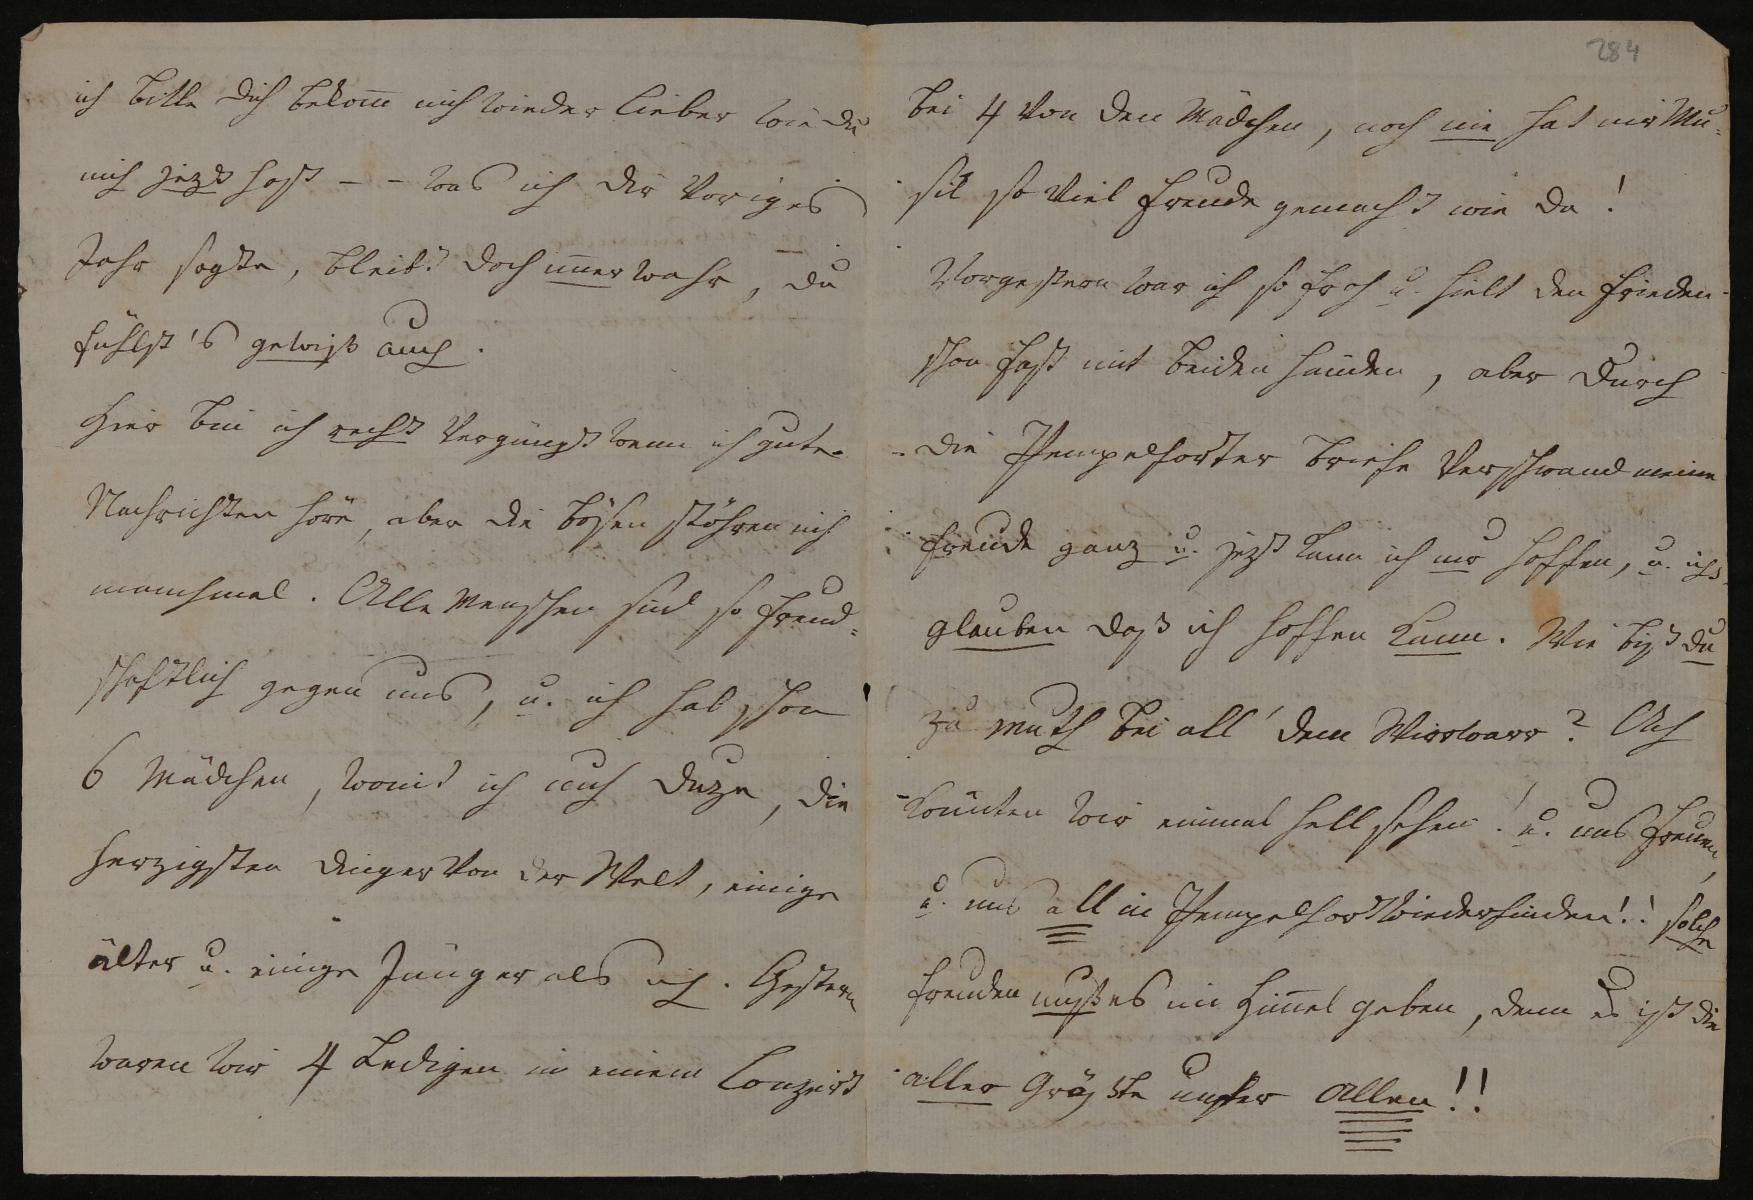 ich bitte dich bekom̅ mich wieder lieber wie du
mich jezt hast – – was ich dir voriges
Jahr sagte, bleibt doch im̅er wahr, du
fühlst's gewiß auch.
Hier bin ich recht vergüngt wenn ich gute
Nachrichten höre, aber die bösen stöhren mich
manchmal. Alle Menschen sind so freund=
schaftlich gegen uns, u. ich hab schon
6 Mädchen, womit ich mich duze, die
herzigsten Dinger von der Welt, einige
älter u. einige Jünger als ich. Gestern
waren wir 4 Ledigen in einem Conzert
284
bei 4 von den Mädchen, noch nie hat mir Mu=
sik so viel Freude gemacht wie da!
Vorgestern war ich so froh u. hielt den Frieden
schon fast mit beiden Händen, aber durch
die Pempelforter Briefe verschwand meine
Freude ganz u. jezt kann ich nur hoffen, u.
glauben daß ich hoffen kann. Wie bist du
zu Muth bei all' dem Wirrwarr? Ach
könnten wir einmal hell sehen! u. uns freuen,
u. uns all in Pempelfort wiederfinden!! solche
Freuden muß es im Him̅el geben, denn es ist die
aller Gröste unster Allen!!